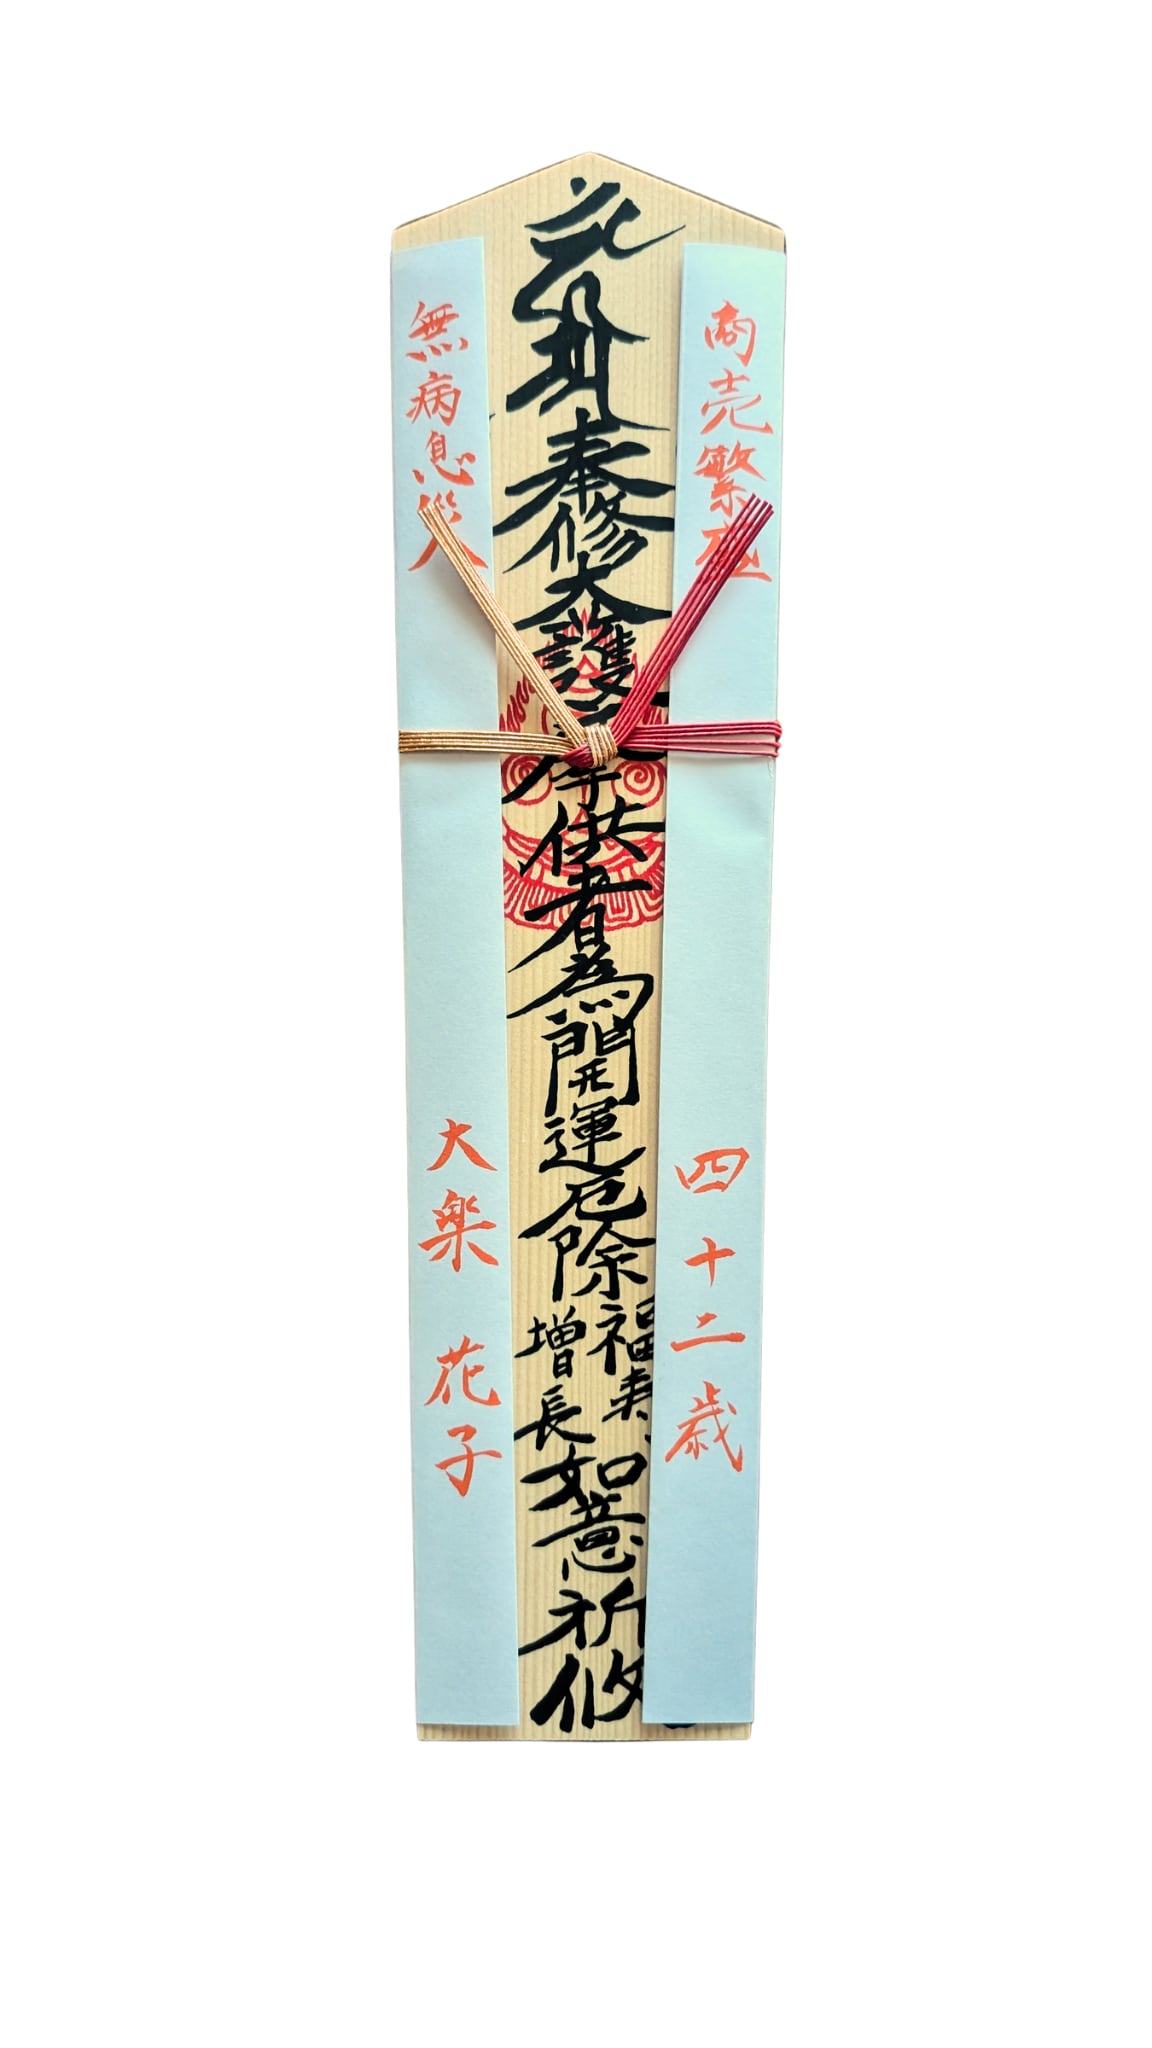 商売繁盛
四十二歳
奉修大護摩供者為開運厄除
福寿
増長
如意祈攸
無病息災
大楽 花子